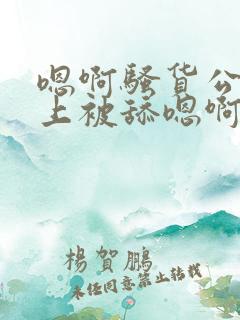 嗯啊骚货公
上被舔嗯啊
楊賀鹏
未经同意禁止转载